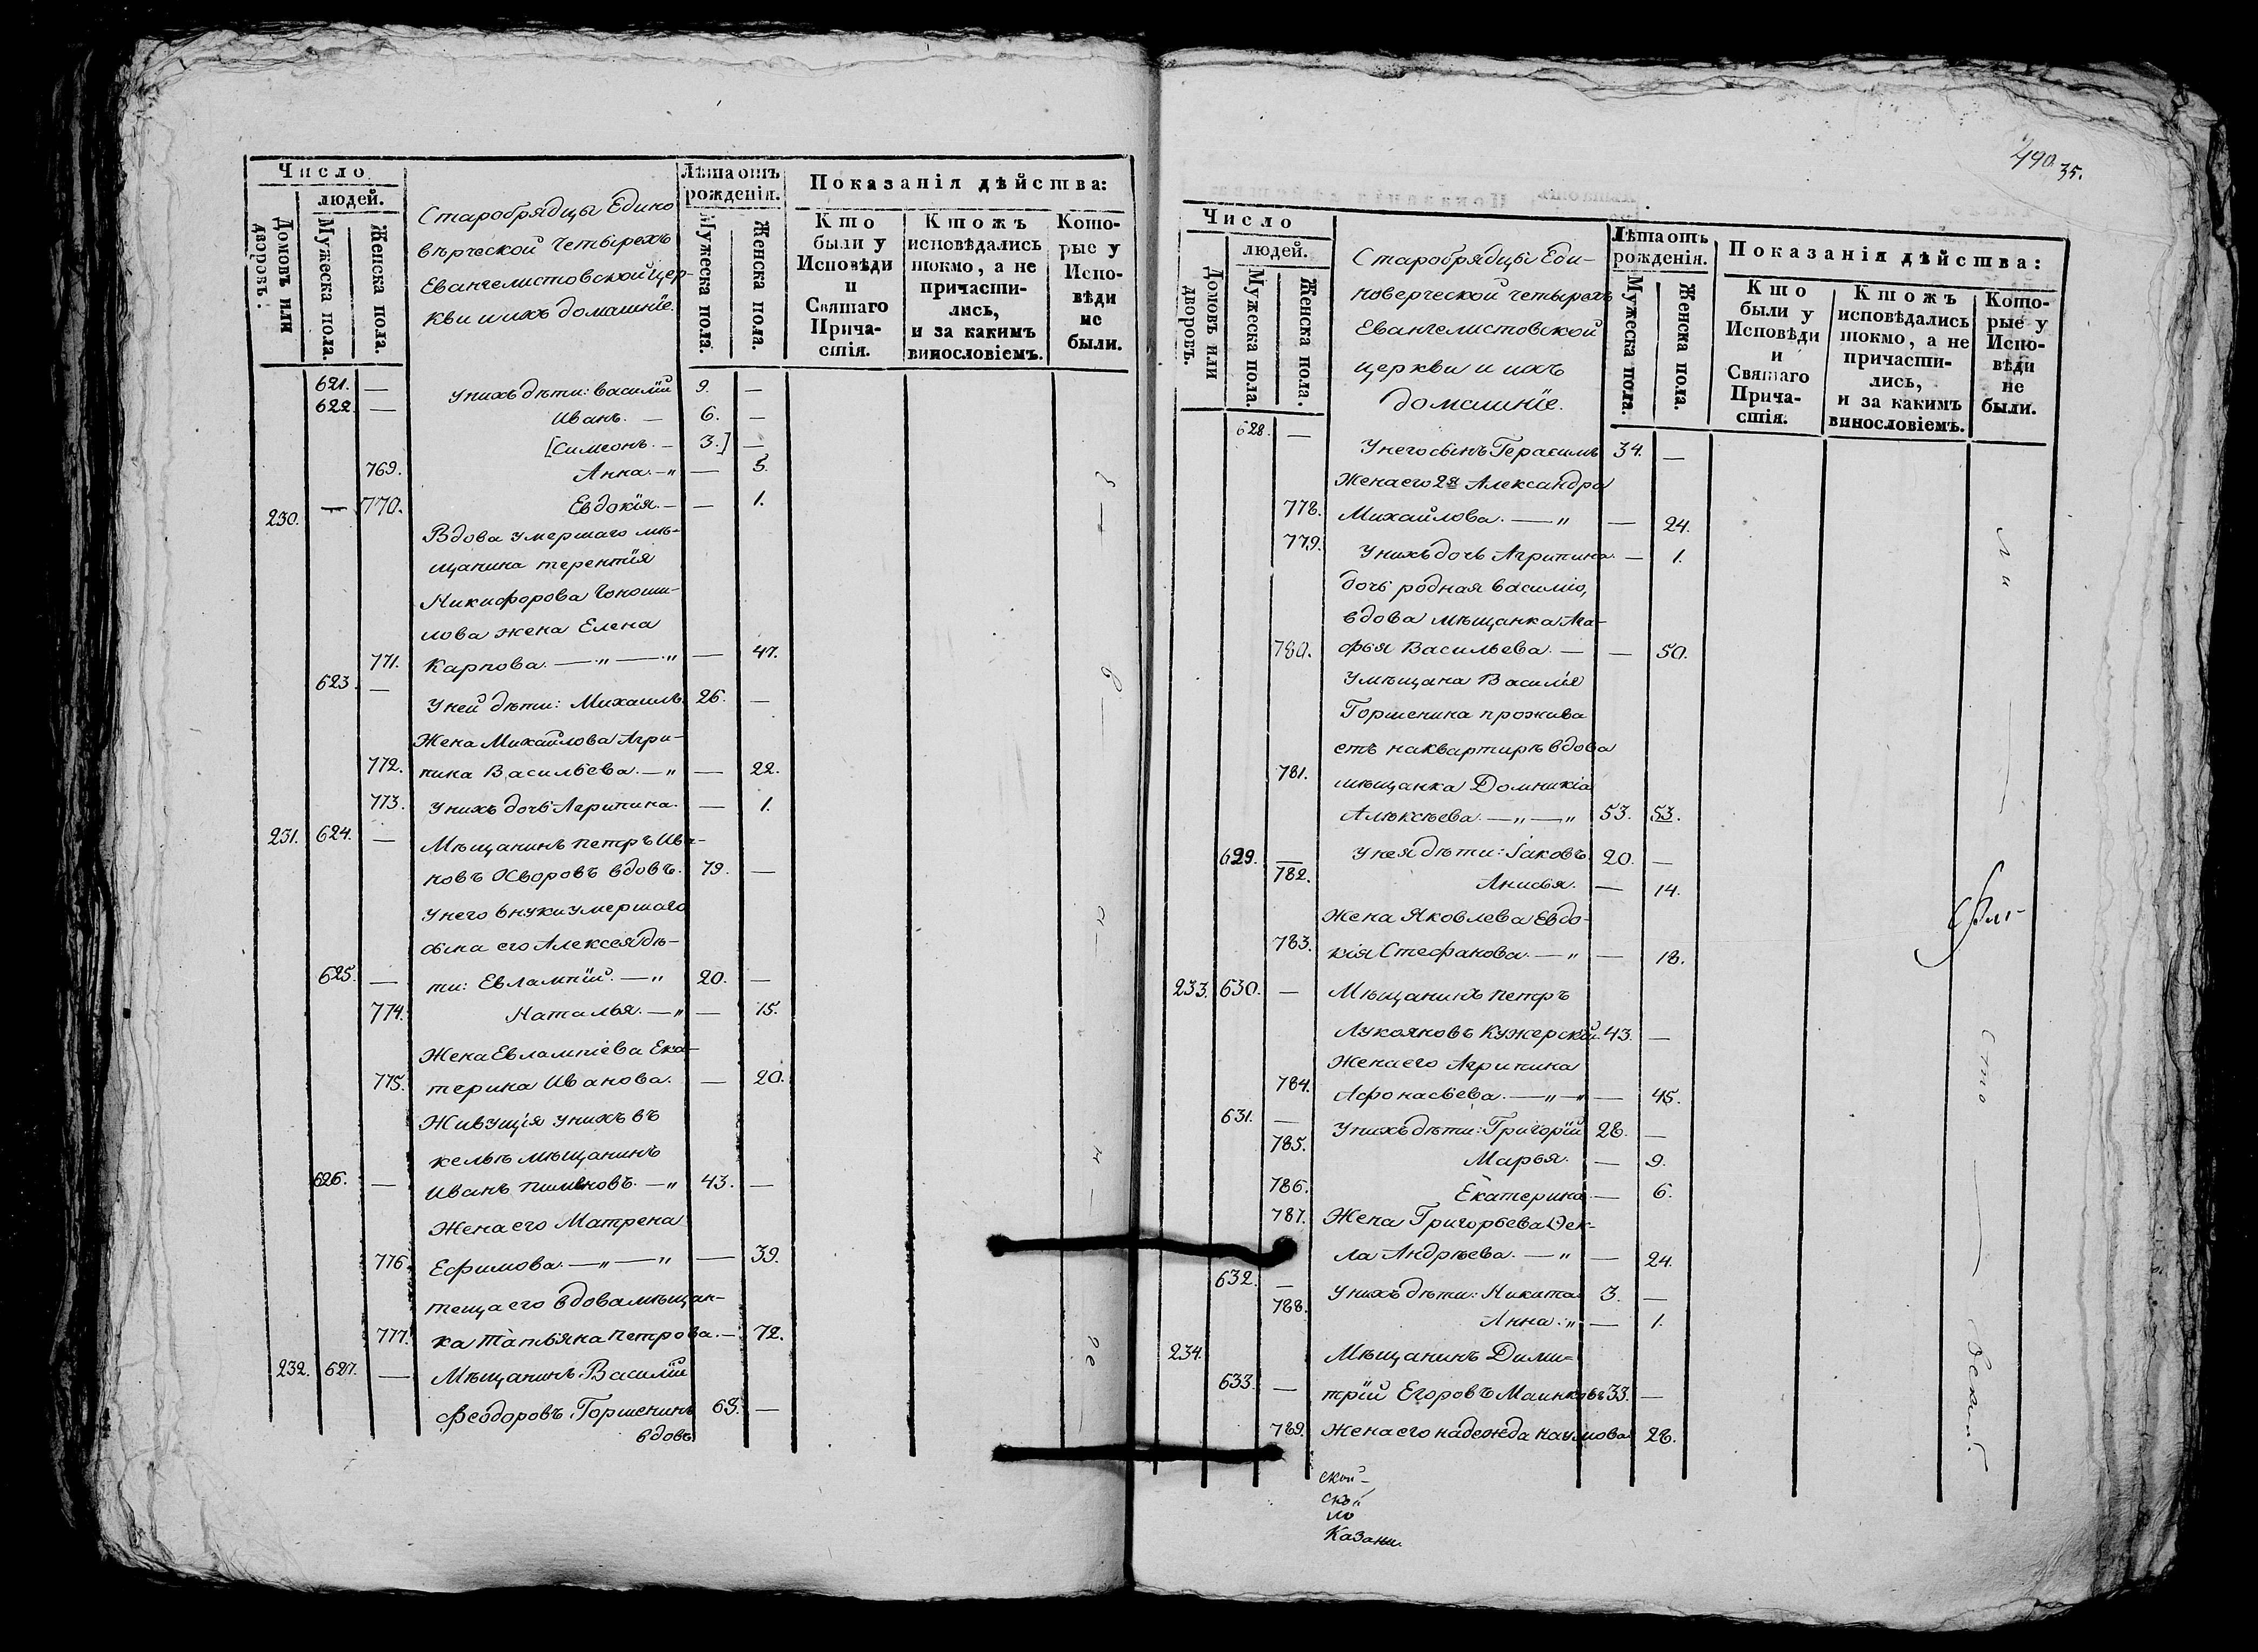 Число
людей.
Домовъ или дворовъ.
Мужеска пола.
Женска пола.
Старобрядцы Едино
вѣрческой Четырехъ
Евангелистовской цер-
кви и ихъ домашнїе.
Лѣта отъ
рожденія.
Мужеска пола.
Женска пола.
Показанія дѣйства:
Кто
были у
Исповѣди
и
Святаго
Прича-
стія.
Ктожъ
исповѣдались
токмо, а не
причасти-
лись,
и за какимъ
винословіемъ.
Кото-
рые у
Испо-
вѣди
не
были.
621. — У нихъ дѣти: Василій 9. —
622. — Иванъ. — 6. —
[Симеонъ. — 3.] —
769. Анна. —„ — 5.
— 770. Евдокїя. — — 1.
230.
Вдова умершаго мѣ-
щанина терентїя
Никифорова
лова жена Елена
771. Карпова. —„—„ — 47.
623. — У ней дѣти: Михаилъ. 26. —
Жена Михайлова Агри-
772. пина Васильева. —„ — 22.
773. У нихъ дочь Агрипина. — 1.
231. 624. — Мѣщанинъ петръ Ива-
новъ Хворовъ вдовъ. 79. —
У него внуки умершаго
сына его Алексея дѣ-
625. — ти: Евлампїй. —„ 20. —
774. Наталья. —„ — 15.
Жена Евлампіева Ека-
775. терина Иванова. — 20.
Живущія у нихъ въ
кельѣ мѣщанинъ
626. — Иванъ пименовъ. —„ 43. —
Жена его Матрена
776. Ефимова. —„—„ — 39.
теща его вдова мѣщан-
777. ка татьяна петрова. — 72.
232. 627. — Мѣщанинъ Василїй
Феодоровъ Горшенинъ 63. —
вдовъ.
490.
35.
Число
людей.
Домовъ или дворовъ.
Мужеска пола.
Женска пола.
Старобрядцы Еди-
новерческой четырехъ
Евангелистовской
церкви и ихъ
домашнїе.
Лѣта отъ
рожденія.
Мужеска пола.
Женска пола.
Показанія дѣйства:
Кто
были у
Исповѣди
и
Святаго
Прича-
стія.
Ктожъ
исповѣдались
токмо, а не
причасти-
лись,
и за какимъ
винословіемъ.
Кото-
рые у
Испо-
вѣди
не
были.
628. — У него сынъ Герасимъ 34. —
Жена его 2я Александра
778. Михайлова. —„ — 24.
779. У нихъ дочь Агрипина. — 1.
дочь родная василию,
вдова мѣщанка Ага-
780. фья Васильева. — — 50.
У мѣщана Василія
Горшенина прожива
етъ на квартирѣ вдова
781. мѣщанка Домникіа
Алексѣева. —„—„ 53. 53.
629. — У нея дѣти: Іаковъ. 20. —
782. Анисья. — 14.
Жена Яковлева Евдо-
783. кія Стефанова. —„ — 18.
233. 630. — Мѣщанинъ петръ
Лукояновъ Кужерской. 43. —
Жена его Агрипина
784. Афонасьева. —„—„ — 45.
631. — У нихъ дѣти: Григорїй 28. —
785. Марья. — 9.
786. Екатерина. — 6.
787. Жена Григорьева Ѳек-
ла Андрѣева. —„ — 24.
632. — У нихъ дѣти: Никита. 3. —
788. Анна. „ — 1.
234.
Мѣщанинъ Дими-
633. — трїй Егоровъ 33. —
789. Жена его надежда Наумова. 28.
ской
ской
по
Казани.